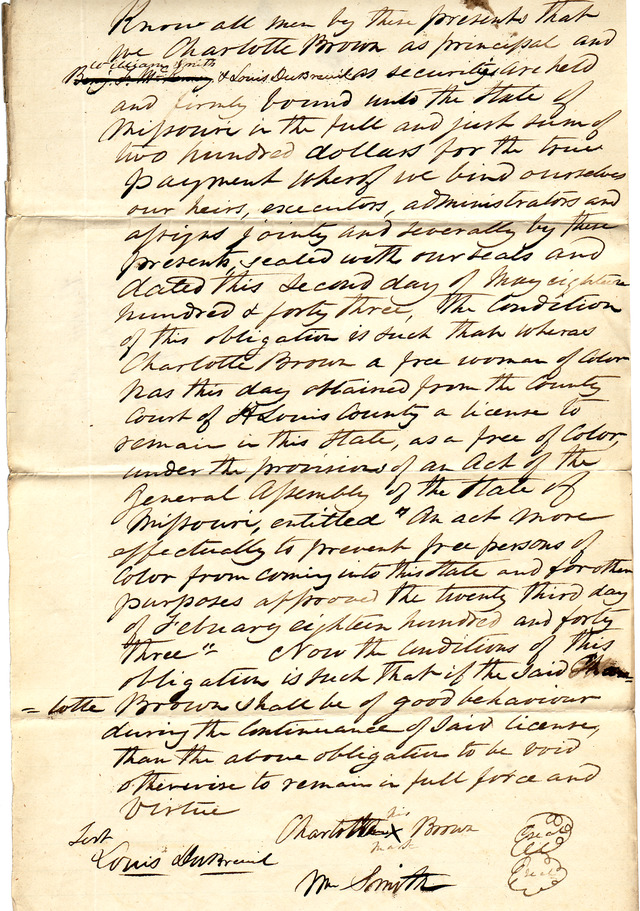 Know all men by these presents that
we Charlotte Brown as principal and
William Smith
Benj. & Louis DuBreuil as securities are held
and firmly bound unto the State of
Missouri in the full and just sum of
two hundred dollars for the true
payment whereof we bind ourselves
our heirs, executors, administrators and
assigns jointly and severally by these
presents, sealed with our seals and
dated this second day of May eighteen
hundred & forty three, The Condition
of this obligation is such that whereas
Charlotte Brown a free woman of Color
has this day obtained from the County
Court of St Louis County a license to
remain in this State, as a free of Color,
under the provisions of an Act of the
General Assembly of the State of
Missouri, entitled "An act more
effectually to prevent free persons of
Color from coming into this State and for other
purposes approved the twenty third day
of Febuary eighteen hundred and forty
three" Now the Conditions of this
obligation is such that if the said Char
=lotte Brown shall be of good behaviour
during the Continuance of said license,
than the above obligation to be void
otherwise to remain in full force and
Virtue
his
Test Charlotte X Brown Seal
mark
Louis DuBreuil
Wm Smith Seal